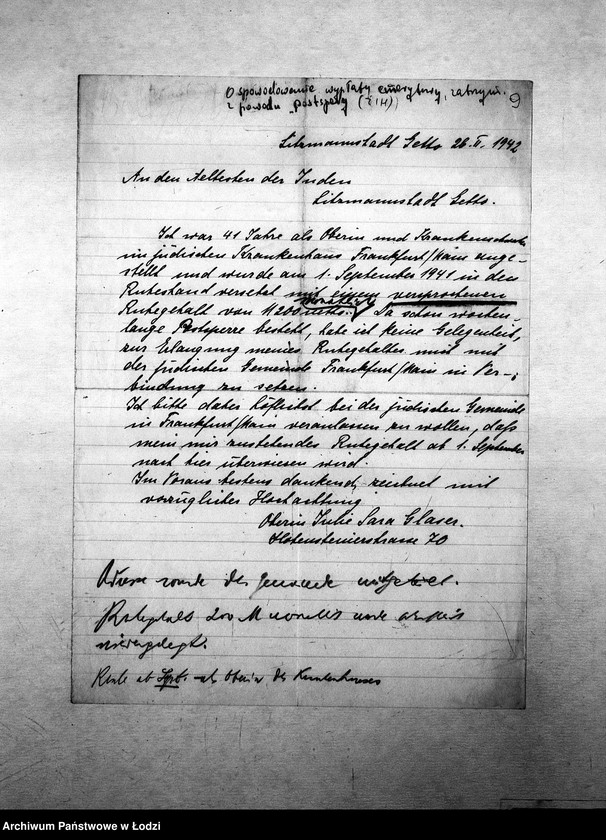 O spowodowanie wypłaty emerytury, zatrzym.
z powodu "postsperry"
9
Litzmannstadt Getto 26.II. 1942
An den Aeltesten der Juden
Litzmannstadt Getto.
Ich war 41 Jahre als Oberin und Krankenschwester
im jüdischen Krankenhaus Frankfurt/Main ange-
stellt und wurde am 1. September 1941 in den
Ruhestand versetzt mit einem versprochenen
monatl.
Ruhegehalt von 200 netto. Da schon wochen-
lange Postsperre besteht, habe ich keine Gelegenheit,
zur Erlangung meines Ruhegehaltes mich mit
der jüdischen Gemeinde Frankfurt/Main in Ver-
bindung zu setzen.
Ich bitte daher höflichst bei der jüdischen Gemeinde
in Frankfurt/Main veranlassen zu wollen, daß
mein mir zustehendes Ruhegehalt ab 1. September
nach hier überwiesen wird.
Im Voraus bestens dankend, zeichnet mit
vorzüglicher Hochachtung
Oberin Julie Sara Glaser.
Hohensteinerstrasse 70
wurde der Gemeinde
Ruhegehalt 200 M
als Oberin des Krankenhauses
Archiwum Państwowe w Łodzi